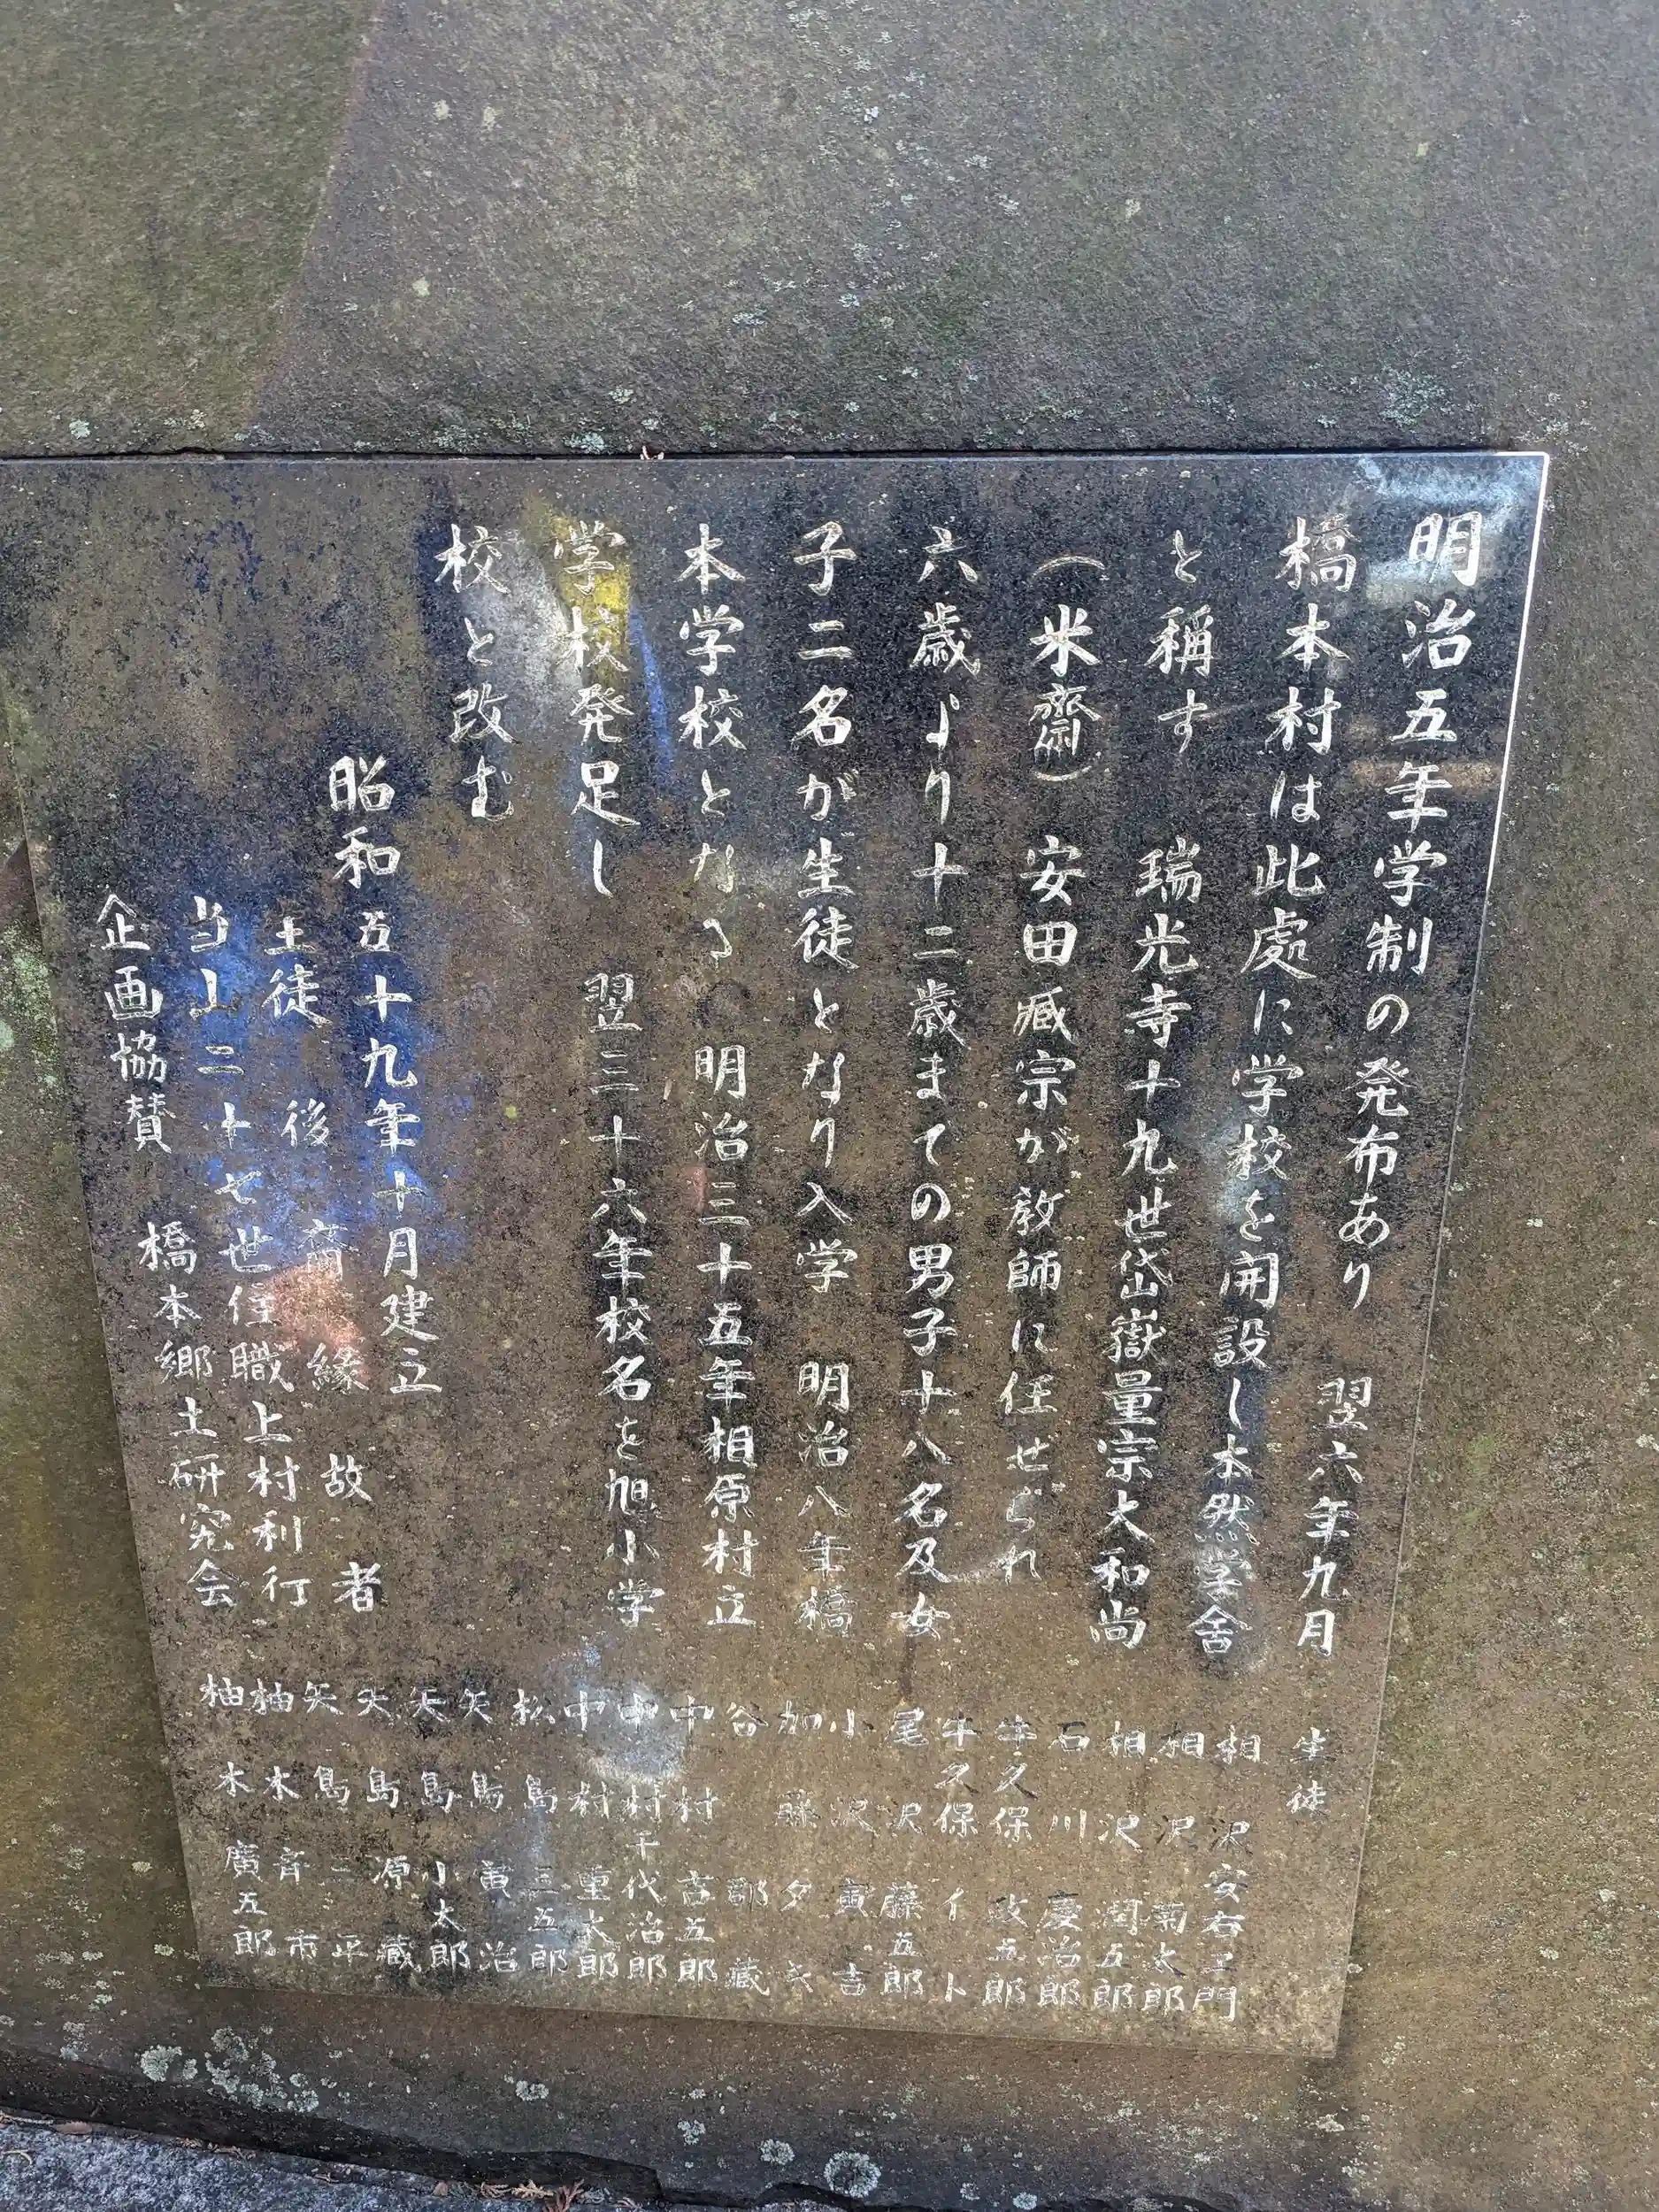 明治五年学制の発布あり 翌六年九月
橋本村は此處に学校を開設し本然学舎
と稱す 瑞光寺十九世岱嶽量宗大和尚
（米齋） 安田臧宗が教師に任せられ
六歳より十二歳まての男子十八名及女
子二名が生徒となり入学 明治八年橋
本学校となる 明治三十五年相原村立
学校発足し 翌三十六年校名を旭小学
校と改む
昭和五十九年十月建立
生徒 後裔 縁故者
当山二十七世住職上村利行
企画協賛 橋本郷土研究会
生徒
相沢安右エ門
相沢菊太郎
相沢潤五郎
石川慶治郎
牛久保政五郎
牛久保イト
尾沢藤五郎
小沢寅吉
加藤タキ
谷郡蔵
中村吉五郎
中村千代治郎
中村重太郎
松島三五郎
矢島寅治
矢島小太郎
矢島原蔵
矢島二平
柚木斉市
柚木廣五郎